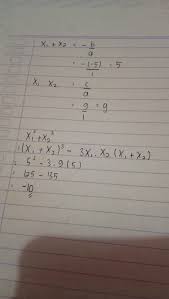 x₁ + x₂ = -b/a
= -(-5)/1 = 5
x₁ x₂ = c/a
= 9/1 = 9
x₁³ + x₂³
= (x₁ + x₂)³ - 3x₁ . x₂ (x₁ + x₂)
= 5³ - 3 . 9 (5)
= 125 - 135
= -10